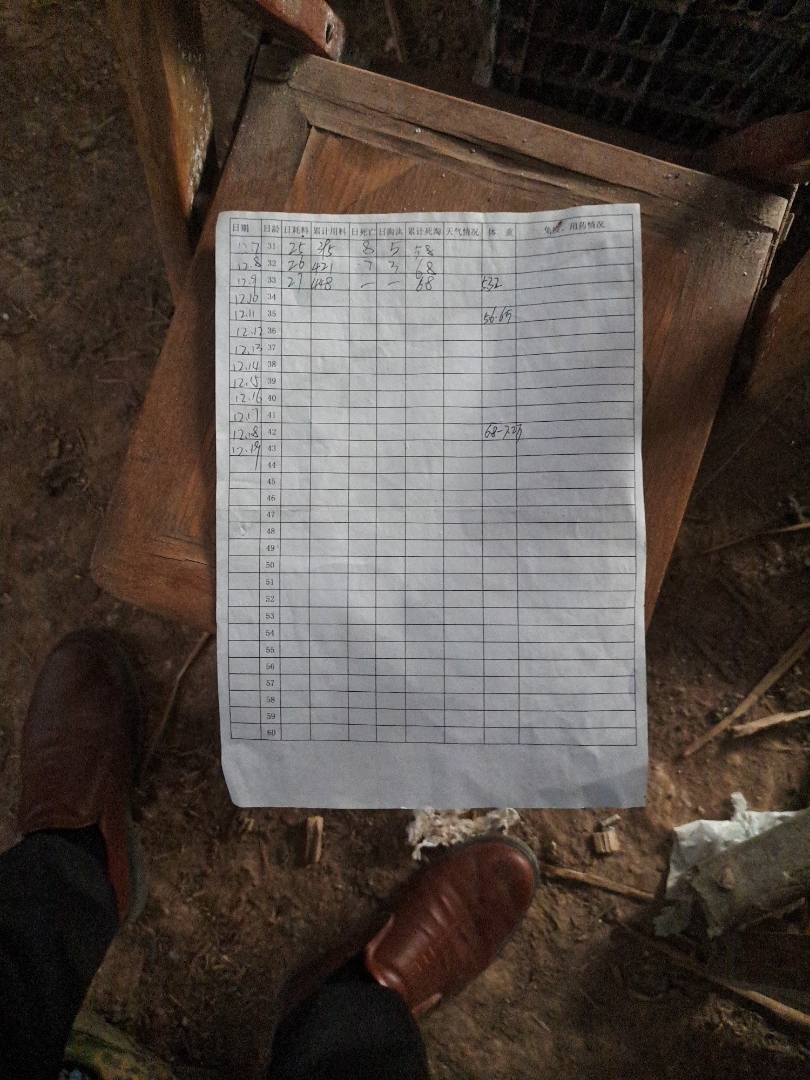 日期 日龄 日耗料 累计用料 日死亡 日淘汰 累计死淘 天气情况 体 重 免疫、用药情况
12.7 31 25 8 5 58
12.8 32 26 421 7 3 68
12.9 33 27 448 - - 68 532
12.10 34
12.11 35 56-65
12.12 36
12.13 37
12.14 38
12.15 39
12.16 40
12.17 41
12.18 42
12.19 43
44
45
46
47
48
49
50
51
52
53
54
55
56
57
58
59
60